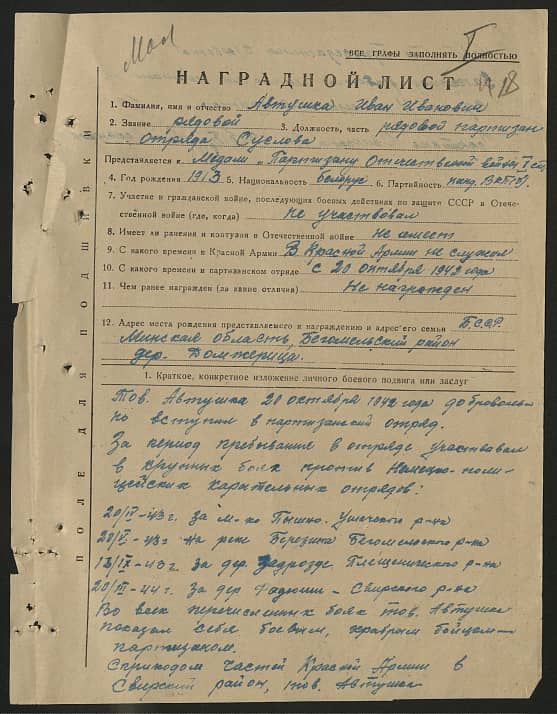 ВСЕ ГРАФЫ ЗАПОЛНЯТЬ ПОЛНОСТЬЮ
НАГРАДНОЙ ЛИСТ
1. Фамилия, имя и отчество Автушка Иван Иванович
2. Звание рядовой 3. Должность, часть рядовой партизан
отряда Суслова
Представляется к Медали "Партизану Отечественной войны" I ст.
4. Год рождения 1913 5. Национальность белорус 6. Партийность канд. ВКП(б)
7. Участие в гражданской войне, последующих боевых действиях по защите СССР и Отече-
ственной войне (где, когда) Не участвовал
8. Имеет ли ранения и контузии в Отечественной войне Не имеет
9. С какого времени в Красной Армии В Красной Армии не служил
10. С какого времени в партизанском отряде с 20 октября 1942 года
11. Чем ранее награжден (за какие отличия) Не награжден
12. Адрес места рождения представляемого к награждению и адрес его семьи Б.С.С.Р.
Минская область, Бегомельский район
дер. Домжерица.
1. Краткое, конкретное изложение личного боевого подвига или заслуг
Тов. Автушка 20 октября 1942 года доброволь-
но вступил в партизанский отряд.
За период пребывания в отряде участвовал
в крупных боях против Немецко-поли-
цейских карательных отрядов:
20/IV-43г. за м-ко Пышно. Ушачского р-на
-43г. на реке Березина Бегомельского р-на
-43г. за дер. Задрозде Плещеницкого р-на
20/III-44г. за дер. Свирского р-на
Во всех перечисленных боях тов. Автушка
показал себя боевым, храбрым бойцом-
партизаном.
С приходом частей Красной Армии в
Свирский район, тов. Автушка
ПОЛЕ ДЛЯ ПОДШИВКИ